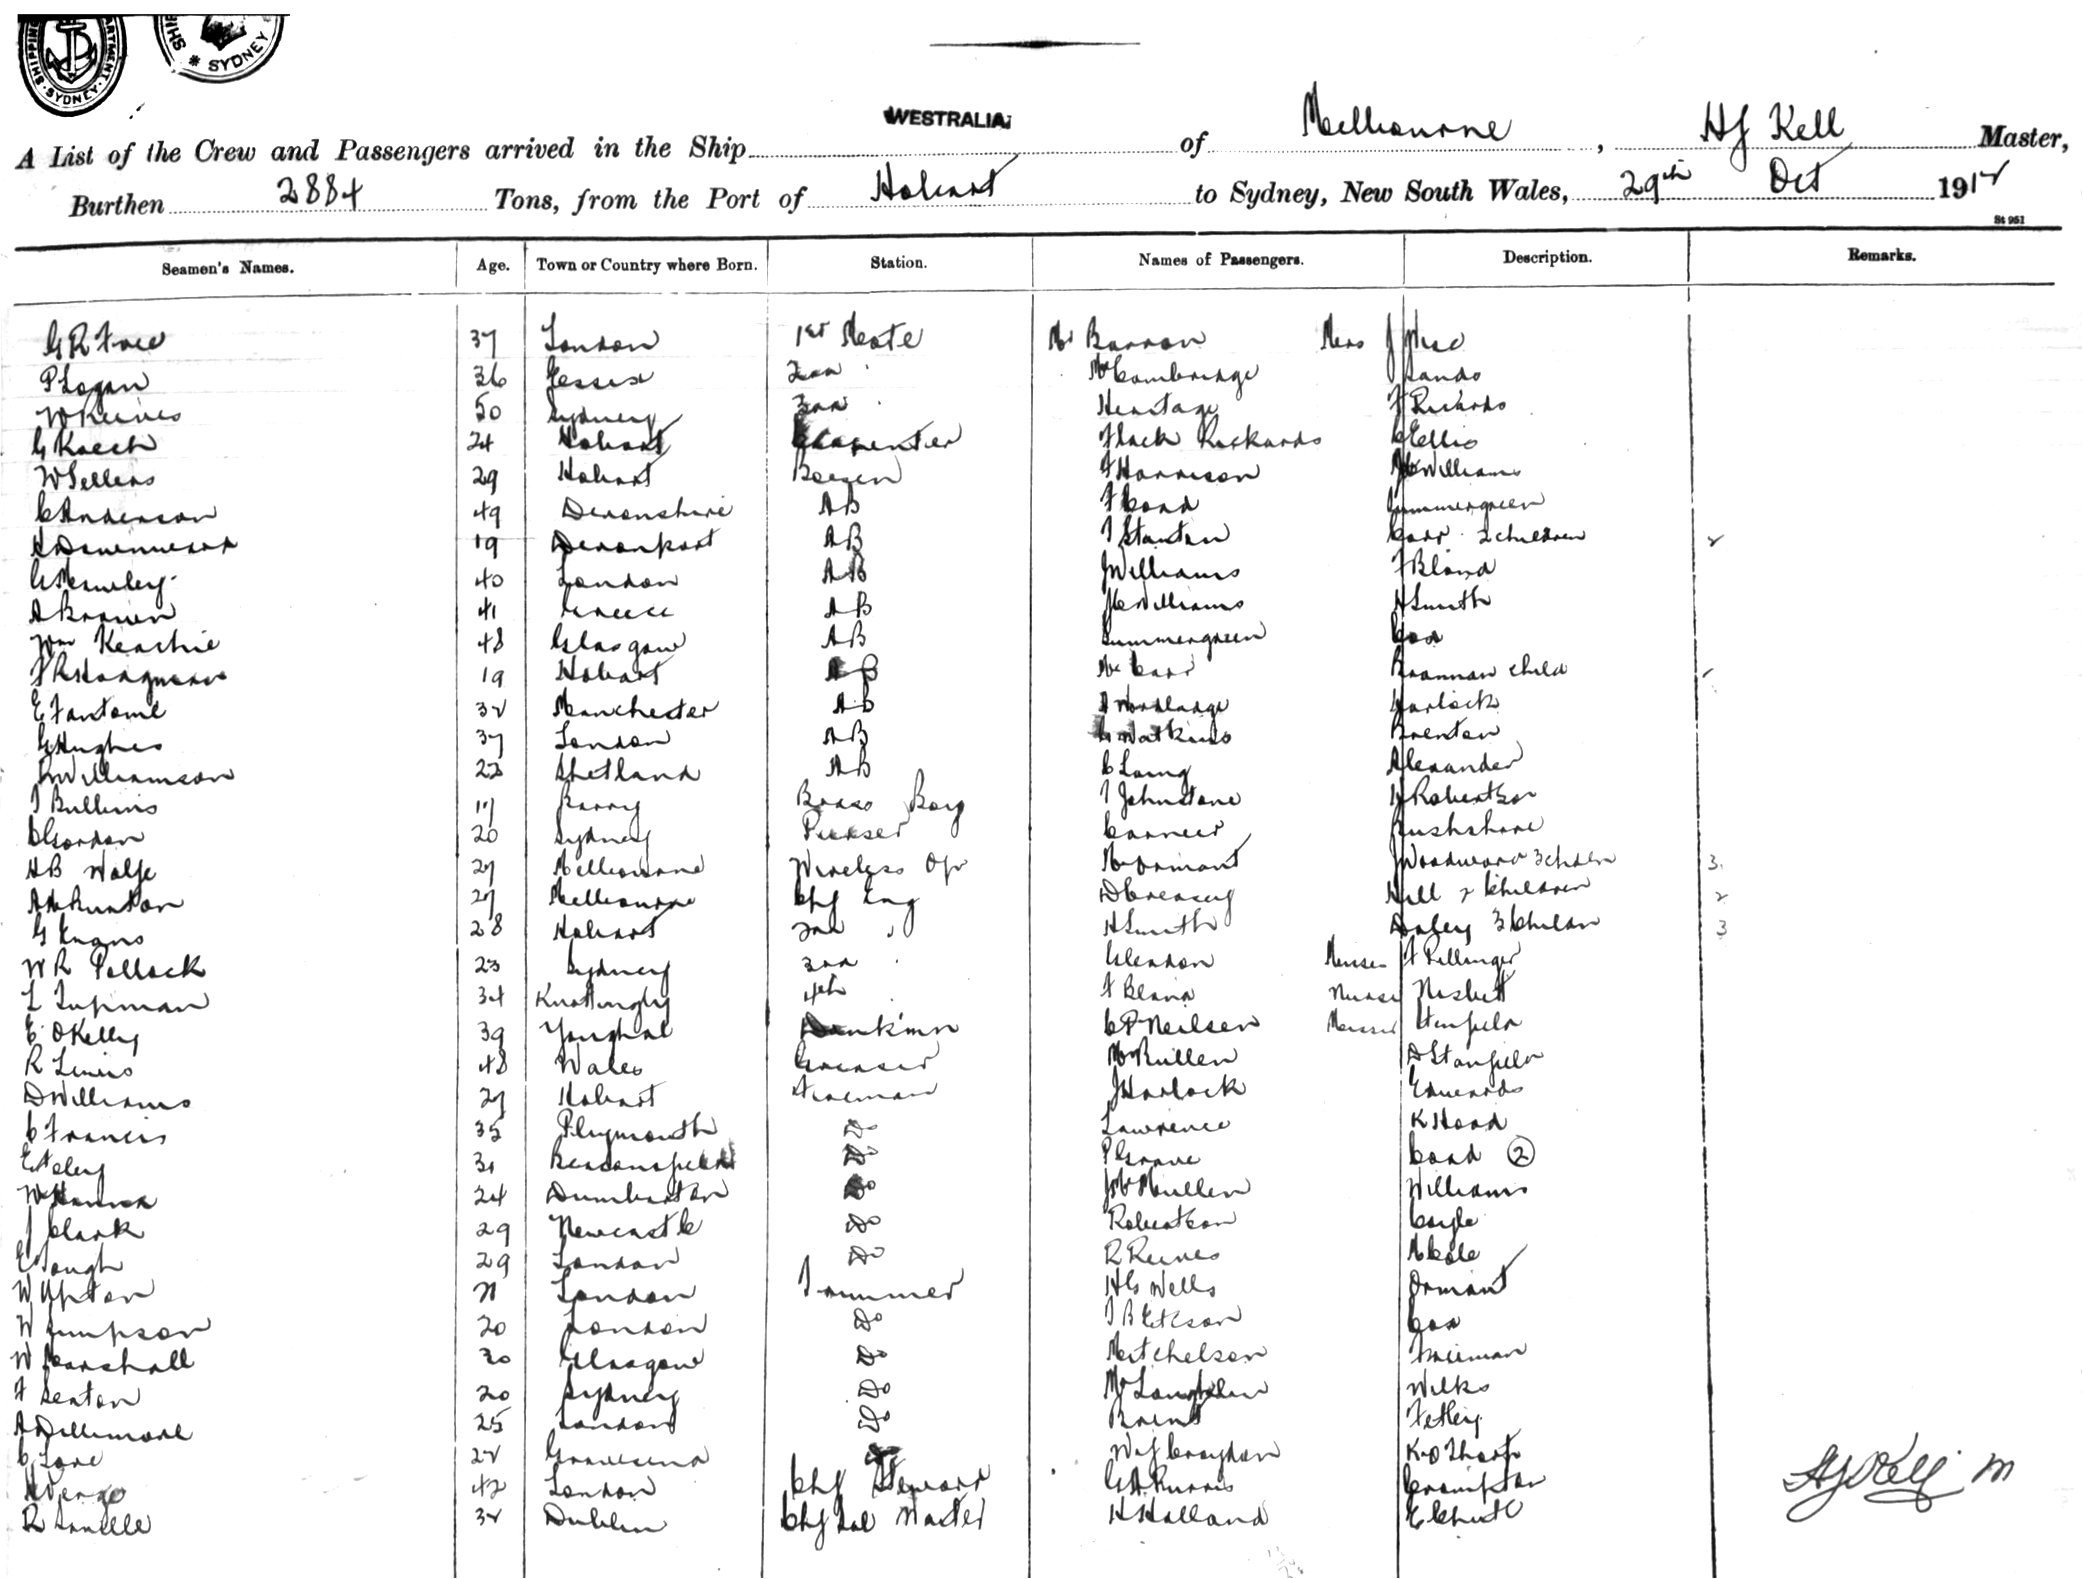 SHIPPING SYDNEY
SYDNEY
WESTRALIA
A List of the Crew and Passengers arrived in the Ship of Melbourne, HJ Kell Master,
Burthen 2884 Tons, from the Port of Hobart to Sydney, New South Wales, 29th Oct 1912
St 951
Seamen's Names. Age. Town or Country where Born. Station. Names of Passengers. Description. Remarks.
G R Free 37 London 1st Mate Mr Barron Mrs J
P Logan 36 Essex 2nd Mr Cambridge Sands
W Reeves 50 Sydney 3rd Heritage F Rickards
G Keech 24 Hobart Carpenter Flack Rickards C Ellis
W Sellers 29 Hobart Bosun F Harrison Williams
C Anderson 49 Devonshire AB F Coad Summergreen
19 Devonport AB T Stanton Carr 2 children 2
40 London AB J Williams F Bland
A Brown 41 Greece AB J C Williams H Smith
Wm Keachie 48 Glasgow AB Summergreen Cox
19 Hobart AB Mr Carr Brannan child 1
E Fantome 32 Manchester AB A Woodladge Harlock
G Hughes 37 London AB G Watkins Brenton
Williamson 22 Shetland AB C Laing Alexander
J Bullins 17 Barry Brass Boy T Johnstone Robertson
C Gordon 20 Sydney Carneer Rushshore
H B Wolfe 27 Melbourne Wireless Opr Mr Ormant Woodward 3 chdren 3
A H Runton 27 Melbourne Chf Eng D Creasey Hill 2 Children 2
G Evans 28 Hobart 2nd H Smith Daley 3 Childn 3
W R Pollock 23 Sydney 3rd Glendon Misses F Pillinger
L Tupman 34 Knottingly 4th F Bland Nurse Nesbitt
E OKelly 39 Youghal Donk'mn C P Neilsen Stanfield
R Lewis 48 Wales Greaser McMullen D Stanfield
D Williams 27 Hobart Fireman J Harlock Edwards
C Francis 35 Plymouth Do Lawrence K Hoad
31 Beaconsfield Do P Grave Coad 2
W Hanna 24 Dumbarton Do J McMullen Williams
J Clark 29 Newcastle Do Robertson Coyle
E Gough 29 London Do R Reeves Cole
W Upton 21 London Trimmer H G Wells Ormant
W Simpson 20 London Do Cox
W Marshall 30 Glasgow Do Mitchelson Freeman
F Seaton 20 Sydney Do McLaughlin Wilks
A Dellimore 25 London Do Brent Fetley
C Lore 22 Gravesend Do W J Croydon K O Tharp
42 London Chf Steward G A Purvis Crompton
R 32 Dublin Chf Sal Waiter H Holland E Chute
HJ Kell M